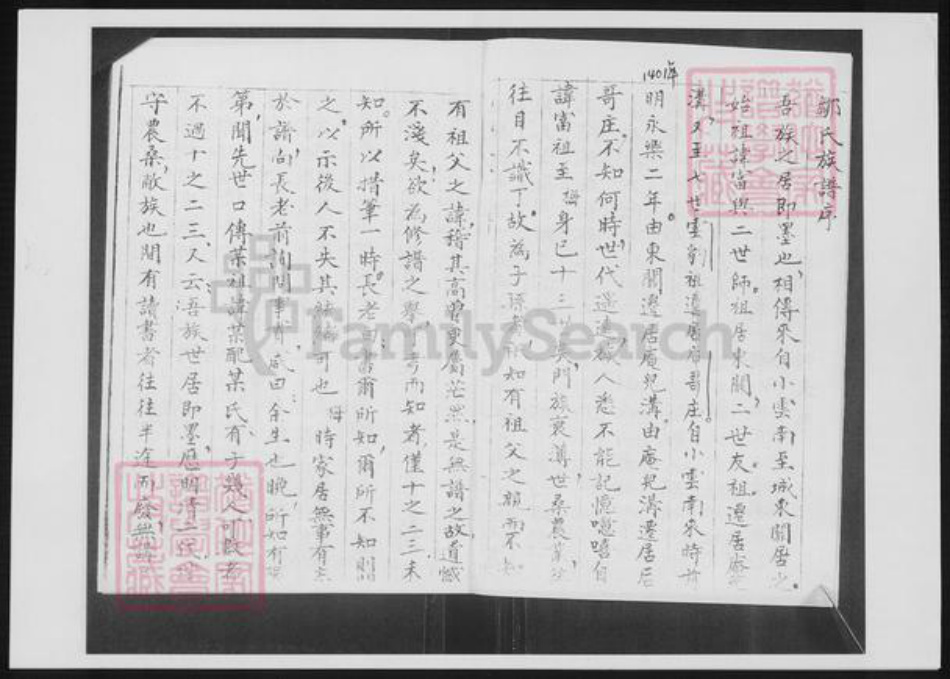 鄒氏族譜序
吾族之居即墨也,相傳來自小雲南至城東關居之。
始祖諱富與二世師。祖居東關,二世友。祖遷居庵
溝,至七世雲豹祖遷居后哥庄。自小雲南來時
1401年
明永樂二年。由東關遷居庵兒溝。由庵兒溝遷居后
哥庄。不知何時世,代遠,族人悉不能記憶噫嘻自
諱富祖至 身已十三世矣,門族衰薄,世桑農業
往目不識丁。故為子孫者知有祖父之親而不知
有祖父之諱,稽其高曾更屬茫然。是無譜之故,遺憾
不淺矣,欲為修譜之舉,可考而知者,僅十之二三,未
知。所以措筆一時。長老曰:書爾所知,爾所不知則
之,以示後人不失其 可也 時家居無事有
於譜向長老前詢問事實,咸曰:余生也晚,所知有
第,聞先世口傳某祖諱某配某氏有子幾人可
不過十之二三人云:吾族世居即墨,歷明清二代,
守農桑,敝族也間有讀書者往往半途而廢,無
FamilySearch